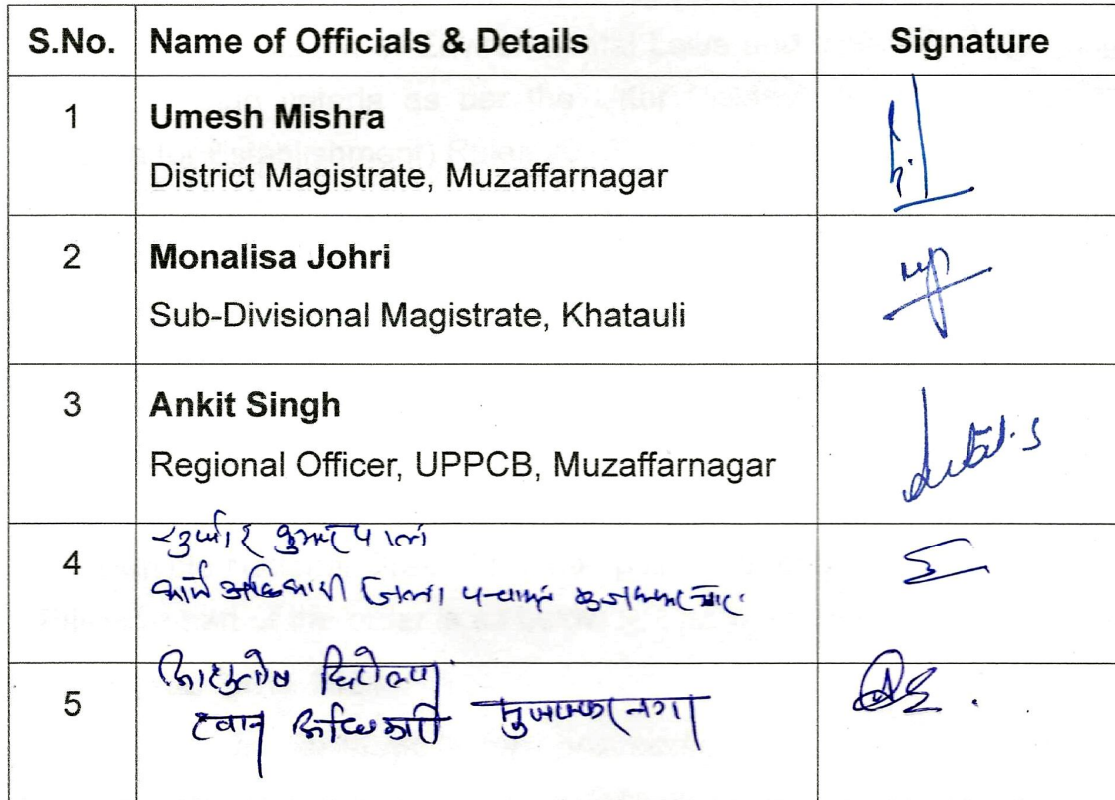 S.No. Name of Officials & Details Signature
1 Umesh Mishra
District Magistrate, Muzaffarnagar
2 Monalisa Johri
Sub-Divisional Magistrate, Khatauli
3 Ankit Singh
Regional Officer, UPPCB, Muzaffarnagar
4 कुमार पाल
जिला पंचायत
5 आशुतोष
मुजफ्फरनगर